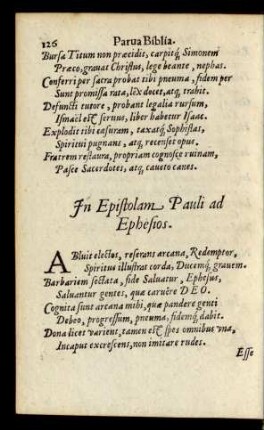 126 Parua Biblia.
Bursæ Titum non præcidit, carpitq́; Simonem
Præco, grauat Christus, lege beante, nephas.
Conferri per sacra probat tibi pneuma, fidem per
Sunt promissa rata, lex docet, atq́; trahit.
Defuncti tutore, probant legalia rursum,
Ismaël est seruus, liber habetur Isaac.
Explodit tibi cæsuram, taxatq́; Sophistas,
Spiritui pugnans, atq́; recenset opus.
Fratrem restaura, propriam cognosce ruinam,
Pasce Sacerdotes, atq́; caueto canes.
In Epistolam Pauli ad
Ephesios.
ABluit electos, reserant arcana, Redemptor,
Spiritus illustrat corda, Ducemq́; grauem.
Barbariem sectata, fide Saluatur, Ephesus,
Saluantur gentes, quæ caruêre DEO.
Cognita sunt arcana mihi, quæ pandere genti
Debeo, progressum, pneuma, fidemq́; dabit.
Dona licet varient, tamen est spes omnibus vna,
Incaput excrescens, non imitare rudes.
Esse